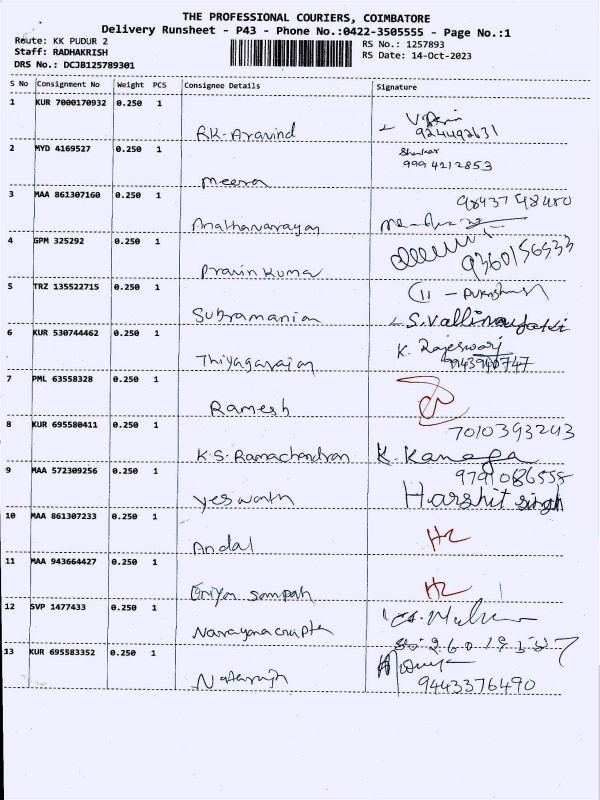 THE PROFESSIONAL COURIERS, COIMBATORE
Delivery Runsheet - P43 - Phone No.:0422-3505555 - Page No.:1
Route: KK PUDUR 2
Staff: RADHAKRISH
DRS No.: DCJB125789301
RS No.: 1257893
RS Date: 14-Oct-2023
S No Consignment No Weight PCS Consignee Details Signature
1 KUR 7000170932 0.250 1
R.K. Aravind
2 MYD 4169527 0.250 1
Meera
9994212853
3 MAA 861307160 0.250 1
Anathanarayan
4 GPM 325292 0.250 1
Pravin Kumar
9360156533
5 TRZ 135522715 0.250 1
Subramanian
S. Vallinayaki
6 KUR 530744462 0.250 1
Thiyagarajan
K. Rajeswari
7 PML 63558328 0.250 1
Ramesh
8 KUR 695580411 0.250 1
7010393243
K.S. Ramachandran
K. Kanaga
9 MAA 572309256 0.250 1
9791086555
Yeswanth
Harshit singh
10 MAA 861307233 0.250 1
Andal
11 MAA 943664427 0.250 1
Sampath
12 SVP 1477433 0.250 1
13 KUR 695583352 0.250 1
9443376490